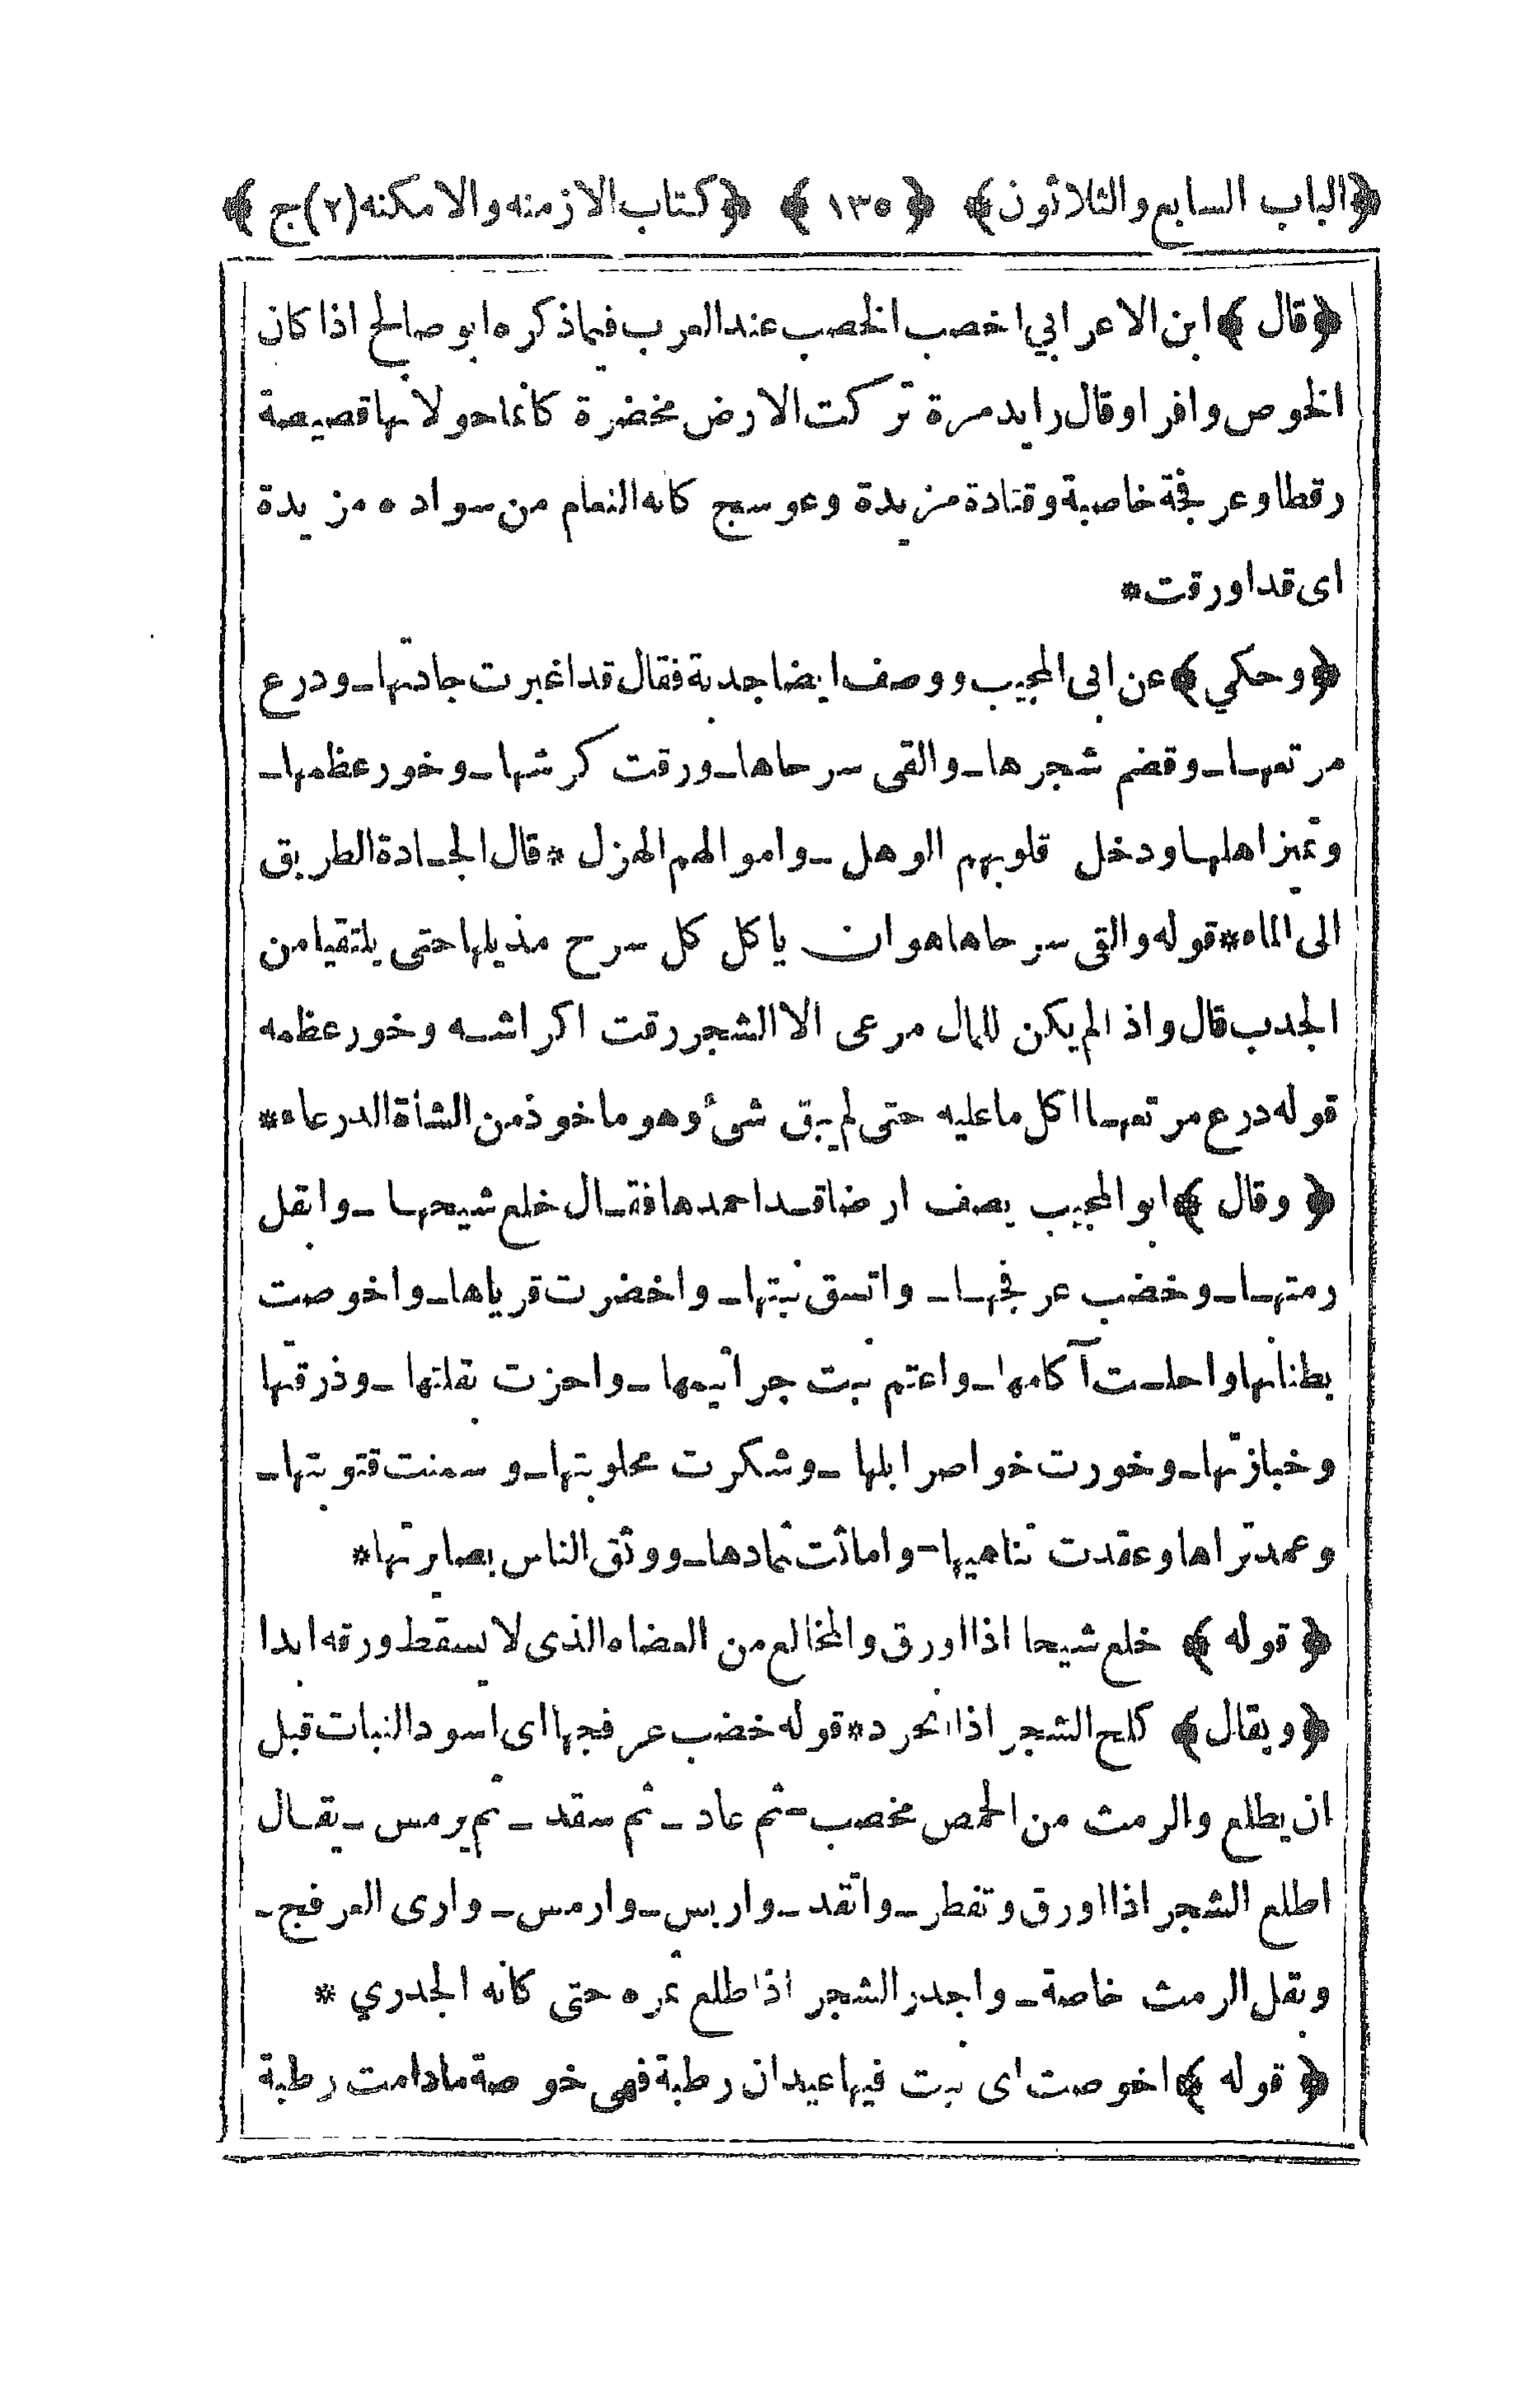 ﴿الباب السابع والثلاثون﴾ ﴿١٣٥﴾ ﴿كتاب الازمنه والامكنه(٢)ج﴾
﴿قال﴾ ابن الاعرابي اخصب الخصب عند العرب فيما ذكره ابو صالح اذا كان
الخوص وافرا وقال رايد مرة تركت الارض مخضرة كأنما حولا بها قصيصة
رقطا وعرفجة خاصبة وقتادة مزيدة وعوسج كانه النعام من سواده مزيدة
اى قد اورقت*
﴿وحكي﴾ عن ابى المجيب ووصف ايضا جدبة فقال قد اغبرت جادتها ـ ودرع
مرتعهـا ـ وقضم شجرها ـ والقى سرحاها ـ ورقت كرشها ـ وخور عظمها ـ
وتميز اهلها ودخل قلوبهم الوهل ـ واموالهم الهزل * قال الجـادة الطريق
الى الماء*قوله والتقى سرحاها هو ان ياكل كل سرح مذيلها حتى يلتقيا من
الجدب قال واذا لم يكن للمال مرعى الا الشجر رقت اكراشـه وخور عظمه
قوله درع مرتعهـا اكل ما عليه حتى لم يبق شئ وهو ماخوذ من الشأة الدرعاء*
﴿وقال﴾ ابو المجيب يصف ارضا قـد احمدها فقـال خلع شيحهـا ـ وابقل
رمتهـا ـ وخضب عرفجهـا ـ واتسق نبتها ـ واخضرت قرياها ـ واخوصت
بطنانها واحلـت آكامها ـ واعتم نبت جراثيمها ـ واحزت بقلتها ـ وذرقتها
وخبازتها ـ وخورت خواصر ابلها ـ وشكرت محلوبتها ـ وسمنت قتوبتها ـ
وعمد ثراها وعقدت تناهيها ـ واماثت ثمادها ـ ووثق الناس بصابرتها*
﴿قوله﴾ خلع شيحا اذا اورق والمخالع من العضاه الذى لا يسقط ورقه ابدا
﴿ويقال﴾ كلح الشجر اذا انجرد*قوله خضب عرفجها اى اسود النبات قبل
ان يطلع والرمث من الحمص مخصب ـ ثم عاد ـ ثم سقد ـ ثم يرمس ـ يقـال
اطلع الشجر اذا اورق وتفطر ـ واتقد ـ واربس ـ وارمس ـ وارى العرفج ـ
وبقل الرمث خاصة ـ واجدر الشجر اذا طلع ثمره حتى كانه الجدري *
﴿قوله﴾ اخوصت اى نبت فيها عيدان رطبة فهى خوصة مادامت رطبة